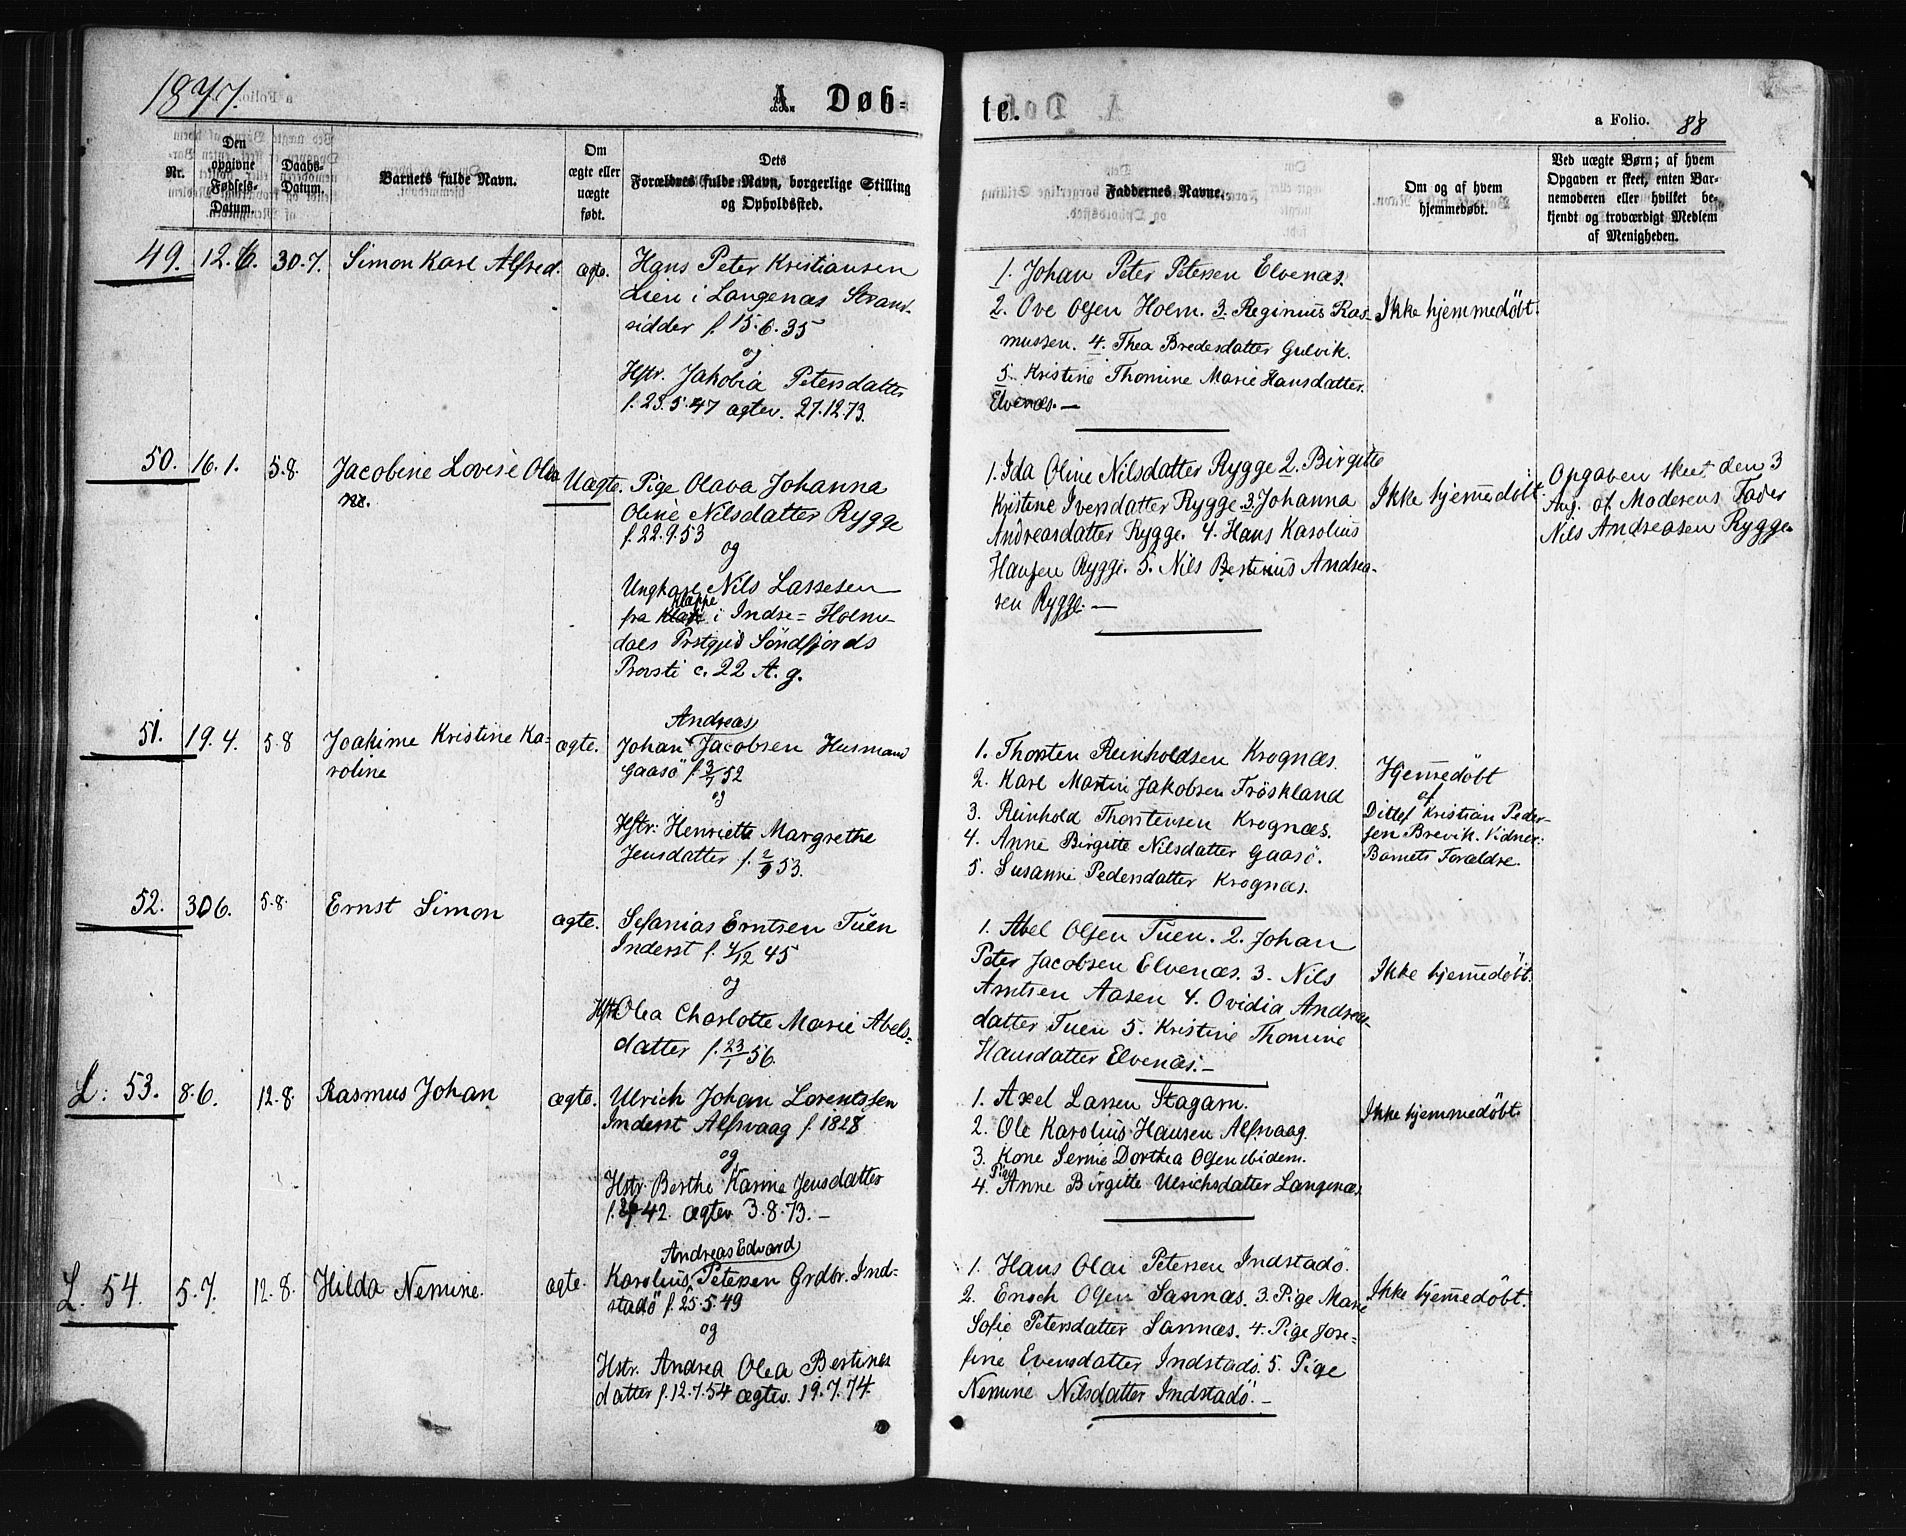 1877.
A. Døb-
te.
a Folio. 88
Nr.
Den opgivne Fødsels-Datum.
Daabs-Datum.
Barnets fulde Navn.
Om ægte eller uægte født.
Dets Forældres fulde Navn, borgerlige Stilling og Opholdssted.
Faddernes Navne.
Om og af hvem hjemmedøbt.
Ved uægte Børn; af hvem Opgaven er skeet, enten Barnemoderen eller hvilket bekjendt og troværdigt Medlem af Menigheden.
49. 12.6. 30.7. Simon Karl Alfred. ægte.
Hans Peter Kristiansen
Lien i Langenæs Strand-
sidder f. 15.6.35
og
Hstr. Jakobia Petersdatter
f. 23.5.47 ægtev. 27.12.73.
1. Johan Peter Petersen Elvenæs.
2. Ove Olsen Holm. 3. Reginius Ras-
mussen. 4. Thea Bredesdatter Gulvik.
5. Kristine Thomine Marie Hansdatter
Elvenæs. —
Ikke hjemmedøbt.
50. 16.1. 5.8. Jacobine Lovise Olea
Uægte.
Pige Olava Johanna
Oline Nilsdatter Rygge
f. 22.9.53
og
Ungkarl Nils Lassesen
fra Klappe i Indre = Holme-
dals Prstgjed Söndfjords
Provsti c. 22 A. g.
1. Ida Oline Nilsdatter Rygge 2. Birgitte
Kristine Iversdatter Rygge. 3. Johanna
Andreasdatter Rygge. 4. Hans Karolius
Hansen Rygge. 5. Nils Bertinus Andrea-
sen Rygge. —
Ikke hjemmedöbt.
Opgaven skeet den 3
Aug. af Moderens Fader
Nils Andreasen Rygge.
51. 19.4. 5.8 Joakime Kristine Ka-
roline
ægte.
Andreas
Johan Jacobsen Husmand
Gaasö f. 3/1 52
og
Hstr: Henriette Margrethe
Jensdatter f. 2/9 53.
1. Thorsten Reinholdsen Krognæs.
2. Karl Martin Jakobsen Fröskland
3. Reinhold Thorstensen Krognæs.
4. Anne Birgitte Nilsdatter Gaasö.
5. Susanne Pedersdatter Krognæs.
Hjemmedöbt
af
Ditlef Kristian Peder-
sen Brevik. Vidner:
Barnets Forældre.
52. 30.6. 5.8. Ernst Simon ægte.
Sefanias Erntsen Tuen
Inderst f. 4/12 45
og
Hstr. Olea Charlotte Marie Abels-
datter f. 23/1 56.
1. Abel Olsen Tuen. 2. Johan
Peter Jacobsen Elvenæs. 3. Nils
Arntsen Aasen 4. Ovidia Andrea-
datter Tuen 5. Kristine Thomine
Hansdatter Elvenæs. —
Ikke hjemmedöbt.
L: 53. 8.6. 12.8. Rasmus Johan ægte.
Ulrich Johan Lorentssen
Inderst Alfsvaag f. 1828
og
Hstr. Berthe Karine Jensdatter
42. ægtev 3.8.73. —
1. Axel Larsen Skagarn.
2. Ole Karolius Hansen Alfsvaag.
3. Kone Serine Dorthea Olsen ibidem.
Pige
4. Anne Birgitte Ulrichsdatter Langenæs.
Ikke hjemmedöbt.
L. 54. 5.7. 12.8. Hilda Nemine. ægte.
Andreas Edvard
Karolius Petersen Grdbr. Ind-
stadö f. 25.5.49
og
Hstr. Andrea Olea Bertines
datter f. 12.7.54 ægtev. 19.7.74.
1. Hans Olai Petersen Indstadö.
2. Enoch Olsen Sannæs. 3. Pige Marie
Sofie Petersdatter Sannæs. 4. Pige Jose-
fine Evensdatter Indstadö. 5. Pige
Nemine Nilsdatter Indstadö. —
Ikke hjemmedöbt.